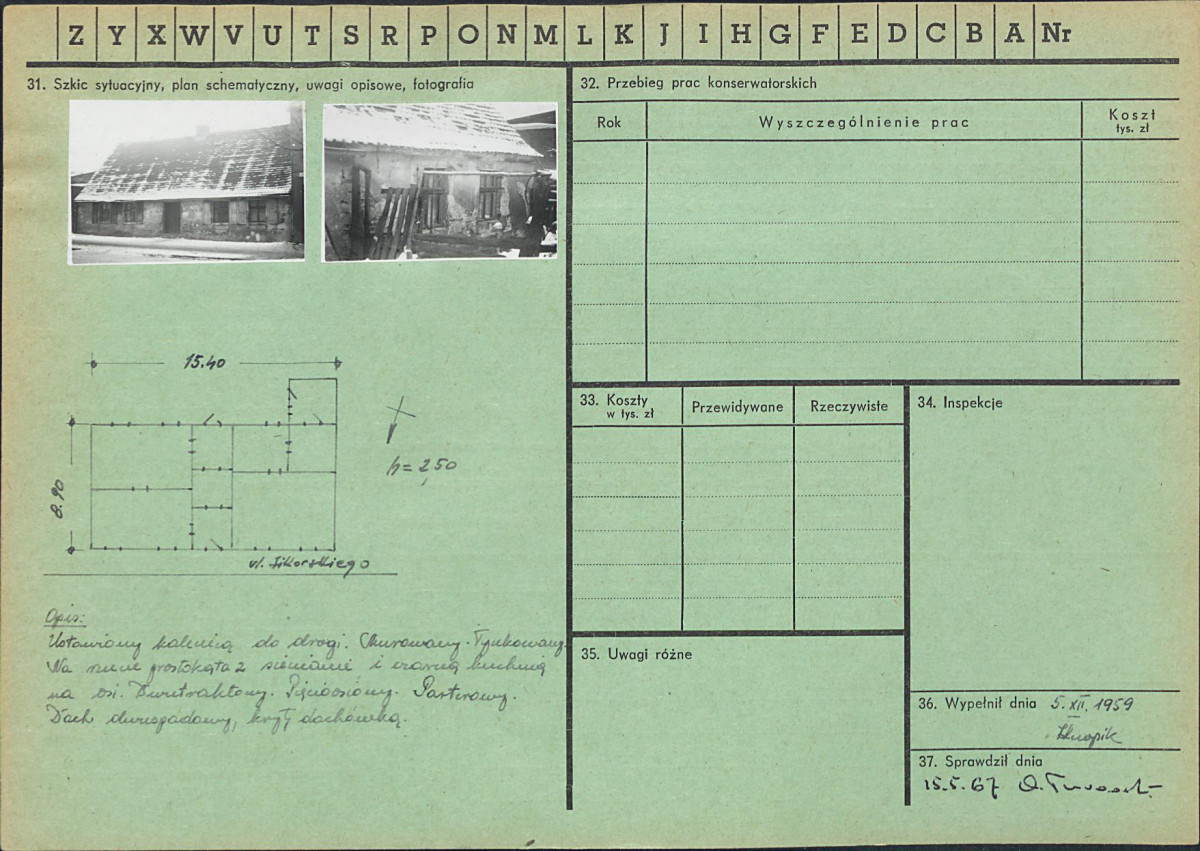 Z Y X W V U T S R P O N M L K J I H G F E D C B A Nr
31. Szkic sytuacyjny, plan schematyczny, uwagi opisowe, fotografia
15.40
8.90
h = 2,50
ul. Sikorskiego
Opis:
Ustawiony kalenicą do drogi. Murowany. Tynkowany.
Na rzucie prostokąta z sieniami i czarną kuchnią
na osi. Dwutraktowy. Pięcioosiowy. Parterowy.
Dach dwuspadowy, kryty dachówką.
32. Przebieg prac konserwatorskich
Rok
Wyszczególnienie prac
Koszt
tys. zł
33. Koszty
w tys. zł
Przewidywane
Rzeczywiste
34. Inspekcje
35. Uwagi różne
36. Wypełnił dnia 5.XII.1959
37. Sprawdził dnia
15.5.67